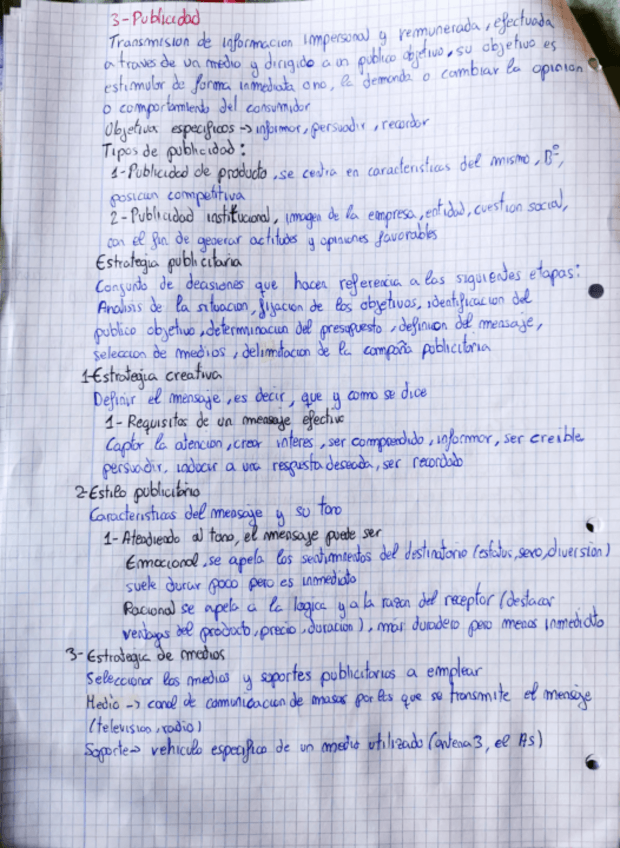 3-Publicidad
Transmision de informacion impersonal y remunerada, efectuada
a traves de un medio y dirigido a un publico objetivo, su objetivo es
estimular de forma inmediata o no, la demanda o cambiar la opinion
o comportamiento del consumidor
Objetivos especificos → informar, persuadir, recordar
Tipos de publicidad:
1-Publicidad de producto, se centra en caracteristicas del mismo, Bº,
posicion competitiva
2-Publicidad institucional, imagen de la empresa, entidad, cuestion social,
con el fin de generar actitudes y opiniones favorables
Estrategia publicitaria
Conjunto de decisiones que hacen referencia a las siguientes etapas:
Analisis de la situacion, fijacion de los objetivos, identificacion del
publico objetivo, determinacion del presupuesto, definicion del mensaje,
seleccion de medios, delimitacion de la campaña publicitaria
1-Estrategia creativa
Definir el mensaje, es decir, que y como se dice
1-Requisitos de un mensaje efectivo
Captar la atencion, crear interes, ser comprendido, informar, ser creible
persuadir, inducir a una respuesta deseada, ser recordado
2-Estilo publicitario
Caracteristicas del mensaje y su tono
1-Atendiendo al tono, el mensaje puede ser
Emocional, se apela los sentimientos del destinatorio (estatus, sexo, diversion)
suele durar poco pero es inmediato
Racional se apela a la logica y a la razon del receptor (destacar
ventajas del producto, precio, duracion), mas duradero pero menos inmediato
3-Estrategia de medios
Seleccionar los medios y soportes publicitarios a emplear
Medio → canal de comunicacion de masas por les que se transmite el mensaje
(television, radio)
Soporte → vehiculo especifico de un medio utilizado (antena 3, el As)